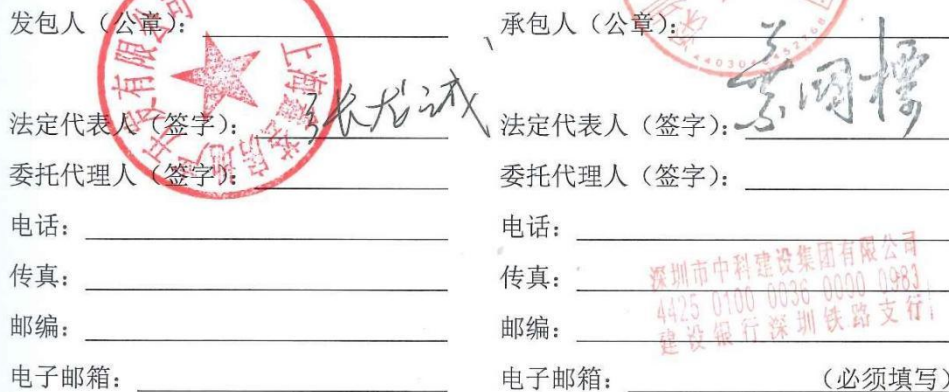 发包人（公章）：
法定代表人（签字）：张龙诚
委托代理人（签字）：
电话：
传真：
邮编：
电子邮箱：
承包人（公章）：
法定代表人（签字）：
委托代理人（签字）：
电话：
传真：
邮编：
电子邮箱：（必须填写）
深圳市中科建设集团有限公司
4425 0100 0036 0000 0983
建设银行深圳铁路支行